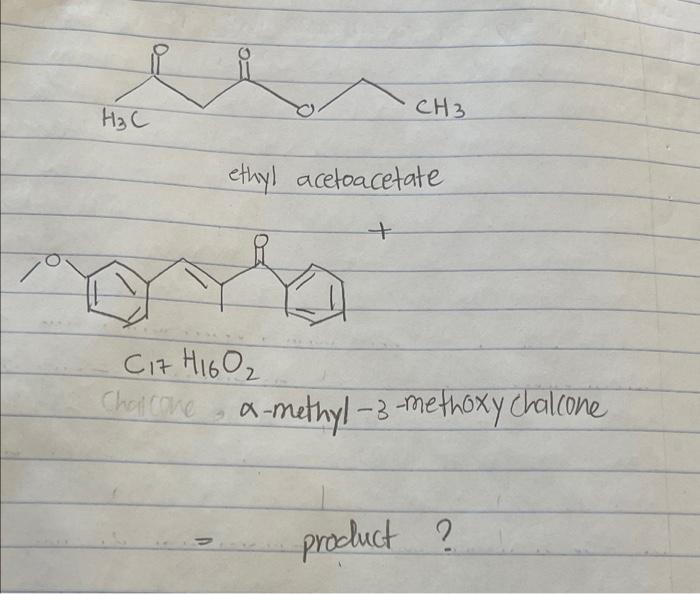 O O
H3C O CH3
ethyl acetoacetate
+
O O
C17 H16O2
Chalcone, α-methyl-3-methoxychalcone
= product ?